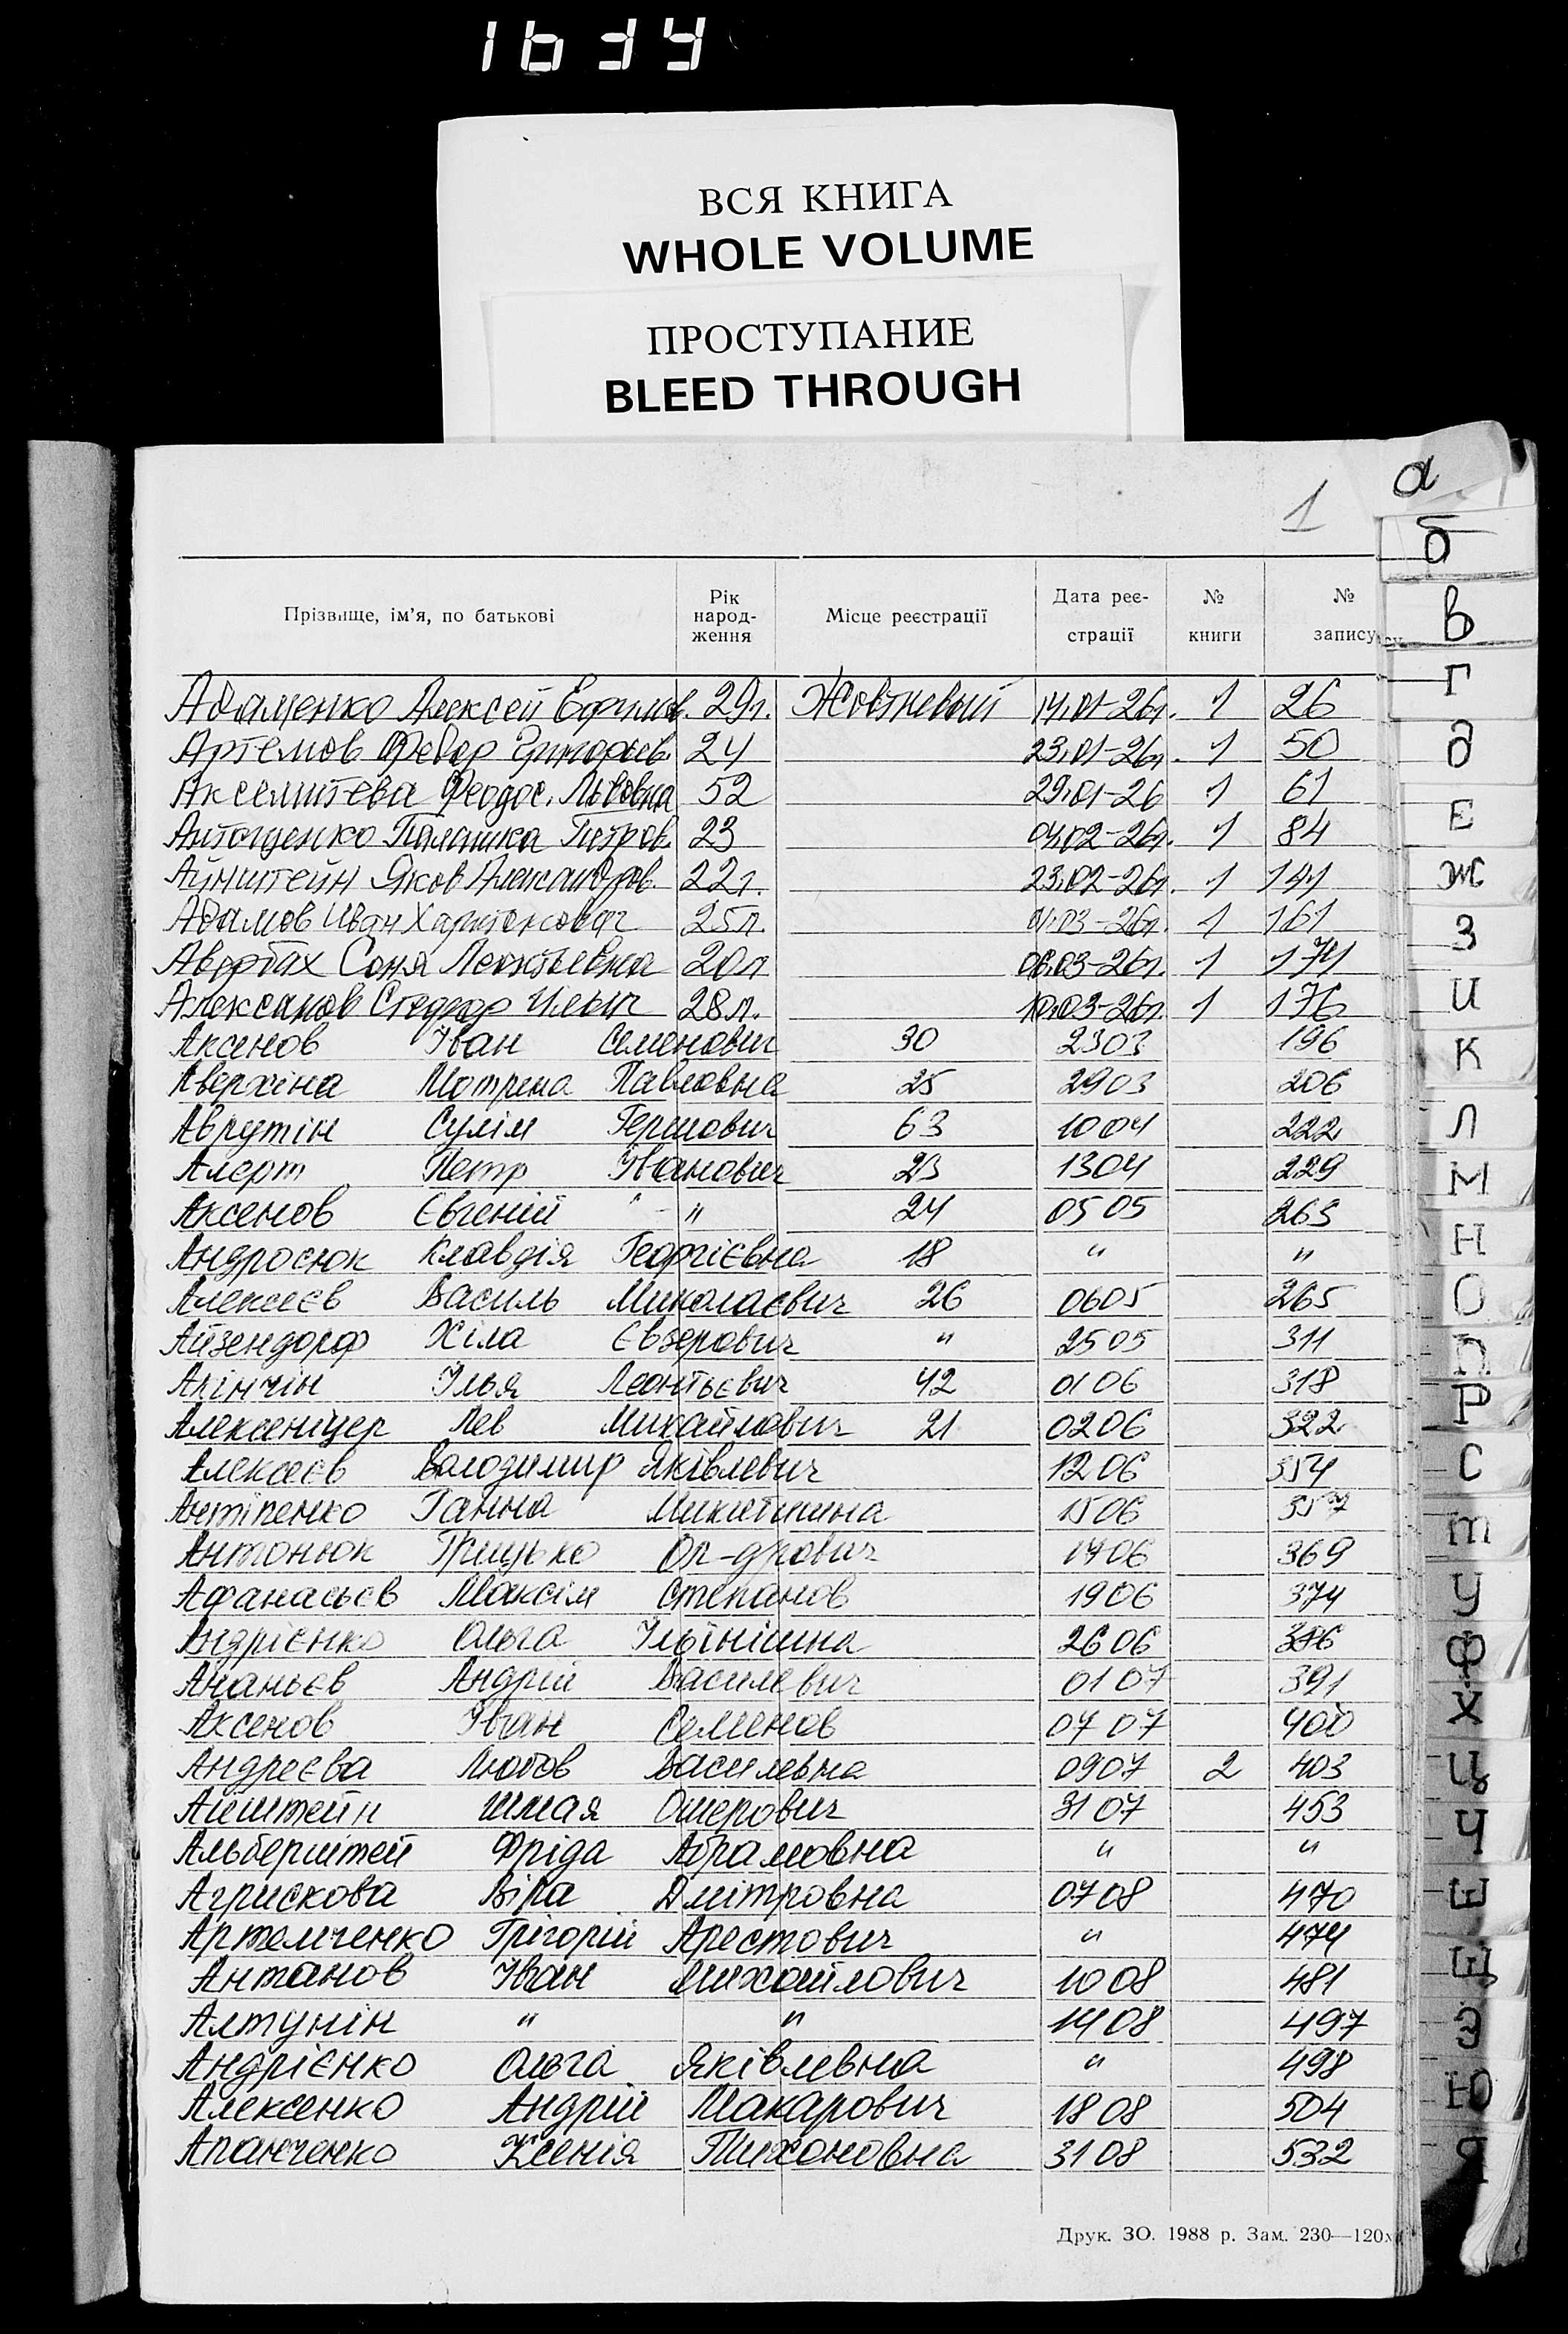 1634
ВСЯ КНИГА
WHOLE VOLUME
ПРОСТУПАНИЕ
BLEED THROUGH
1
а
б
в
г
д
Е
ж
З
И
К
Л
М
Н
О
П
Р
С
т
У
Ф
Х
Ц
Ч
Ш
Щ
Э
Ю
Я
Прізвище, ім'я, по батькові Рік народ-ження Місце реєстрації Дата реє-страції № книги № запису
Адаменко Алексей Ефимов. 29г. Жовтневый 14.01-26г. 1 26
Артемов Федор Григорьев. 24 23.01-26г. 1 50
Акселитева Феодос. Львовна 52 29.01-26 1 61
Антощенко Палашка Петров. 23 04.02-26г. 1 84
Айнштейн Яков Александров. 22г. 23.02-26г. 1 141
Адамов Иван 25л. 01.03-26г. 1 161
Авербах Соня Леонтьевна 20л 08.03-26г. 1 174
Алексанов Ильич 28л. 10.03-26г. 1 176
Аксенов Іван Семенович 30 2303 196
Аверхіна Мотрена Павловна 25 2903 206
Аврутін Сулім Гершович 63 1004 222
Алерт Петр Іванович 23 1304 229
Аксенов Євгеній " - " 24 0505 263
Андросюк Клавдія Георгієвна 18 " "
Алексєєв Василь Миколаєвич 26 0605 265
Айзендорф Хіла Євзерович " 2505 311
Акінчін Ілья Леонтьєвич 42 0106 318
Алексеніцер Лев Михайлович 21 0206 322
Алексєєв Володимир Яківлевич 1206 354
Антіпенко Ганна Микитишна 1506 357
Антонюк Грицько Ол-дрович 1706 369
Афанасьєв Максім Степанов 1906 374
Андрієнко Ольга Ільїнішна 2606 386
Ананьєв Андрій Василевич 0107 391
Аксенов Іван Семенов 0707 400
Андреєва Любов Василевна 0907 2 403
Айштейн Шмая Ошерович 3107 453
Альберштей Фріда Абрамовна " "
Агрискова Віра Дмітровна 0708 470
Артемченко Грігорій Арестович " 474
Антанов Іван Михайлович 1008 481
Алтунін " " 1408 497
Андрієнко Ольга Яківлевна " 498
Алексенко Андрій Макарович 1808 504
Апанченко Ксенія Тихоновна 3108 532
Друк. ЗО. 1988 р. Зам. 230—120х